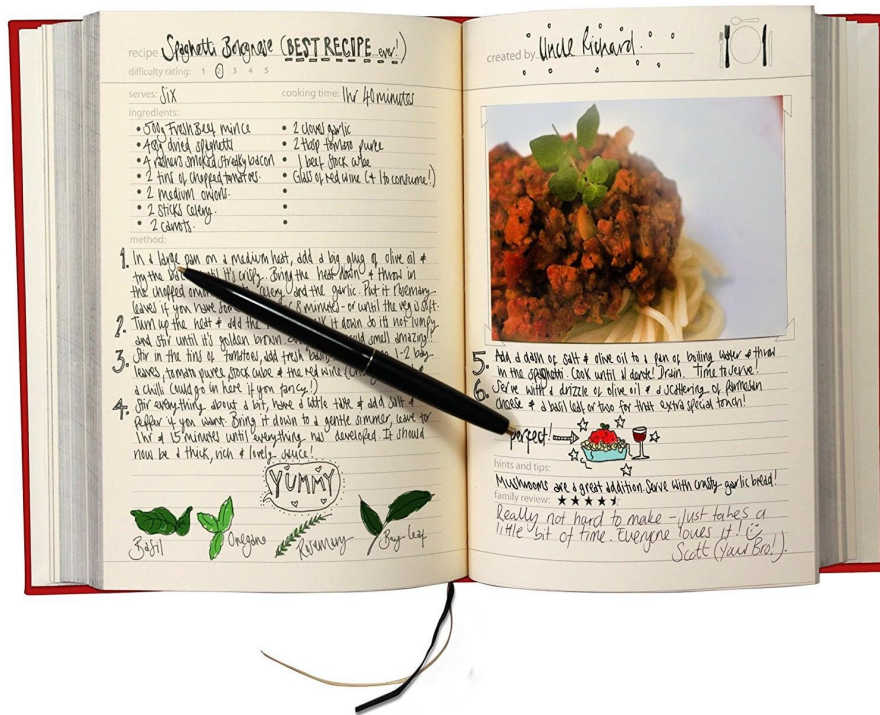 recipe Spaghetti Bolognese (BEST RECIPE ...ever!)
difficulty rating: 1 2 3 4 5
serves: Six cooking time: 1hr 40 minutes
ingredients:
• 500g Fresh Beef mince
• dried spaghetti
• 4 rashers smoked streaky bacon
• 2 tins of chopped tomatoes.
• 2 medium onions.
• 2 sticks celery.
• 2 carrots.
• 2 cloves garlic
• 2 tbsp tomato puree
• 1 beef stock cube
• Glass of red wine (+ 1 to consume!)
method:
1. In a large pan on a medium heat, add a big glug of olive oil &
fry the until it's crispy. Bring the heat down & throw in
the chopped celery and the garlic. Put it rosemary
leaves if you have 8 minutes - or until the veg is soft.
2. Turn up the heat & add the it down so it's not lumpy
and stir until it's golden brown. smell amazing!
3. Stir in the tins of tomatoes, add fresh 1-2 bay
leaves, tomato puree, stock cube & the red wine
a chilli could go in here if you fancy!)
4. Stir everything about a bit, have a little taste & add salt &
pepper if you want. Bring it down to a gentle simmer, leave for
1hr & 15 minutes until everything has developed. It should
now be a thick, rich & lovely sauce!
YUMMY
Basil Oregano Rosemary Bay-Leaf
created by Uncle Richard.
5. Add a dash of salt & olive oil to a pan of boiling water & throw
in the spaghetti. Cook until al dente! Drain. Time to serve!
6. Serve with a drizzle of olive oil & a scattering of parmesan
cheese & a basil leaf or two for that extra special touch!
perfect!
hints and tips:
Mushrooms are a great addition. Serve with crusty garlic bread!
family review:
Really not hard to make - just takes a
little bit of time. Everyone loves it!
Scott (Your Bro!).